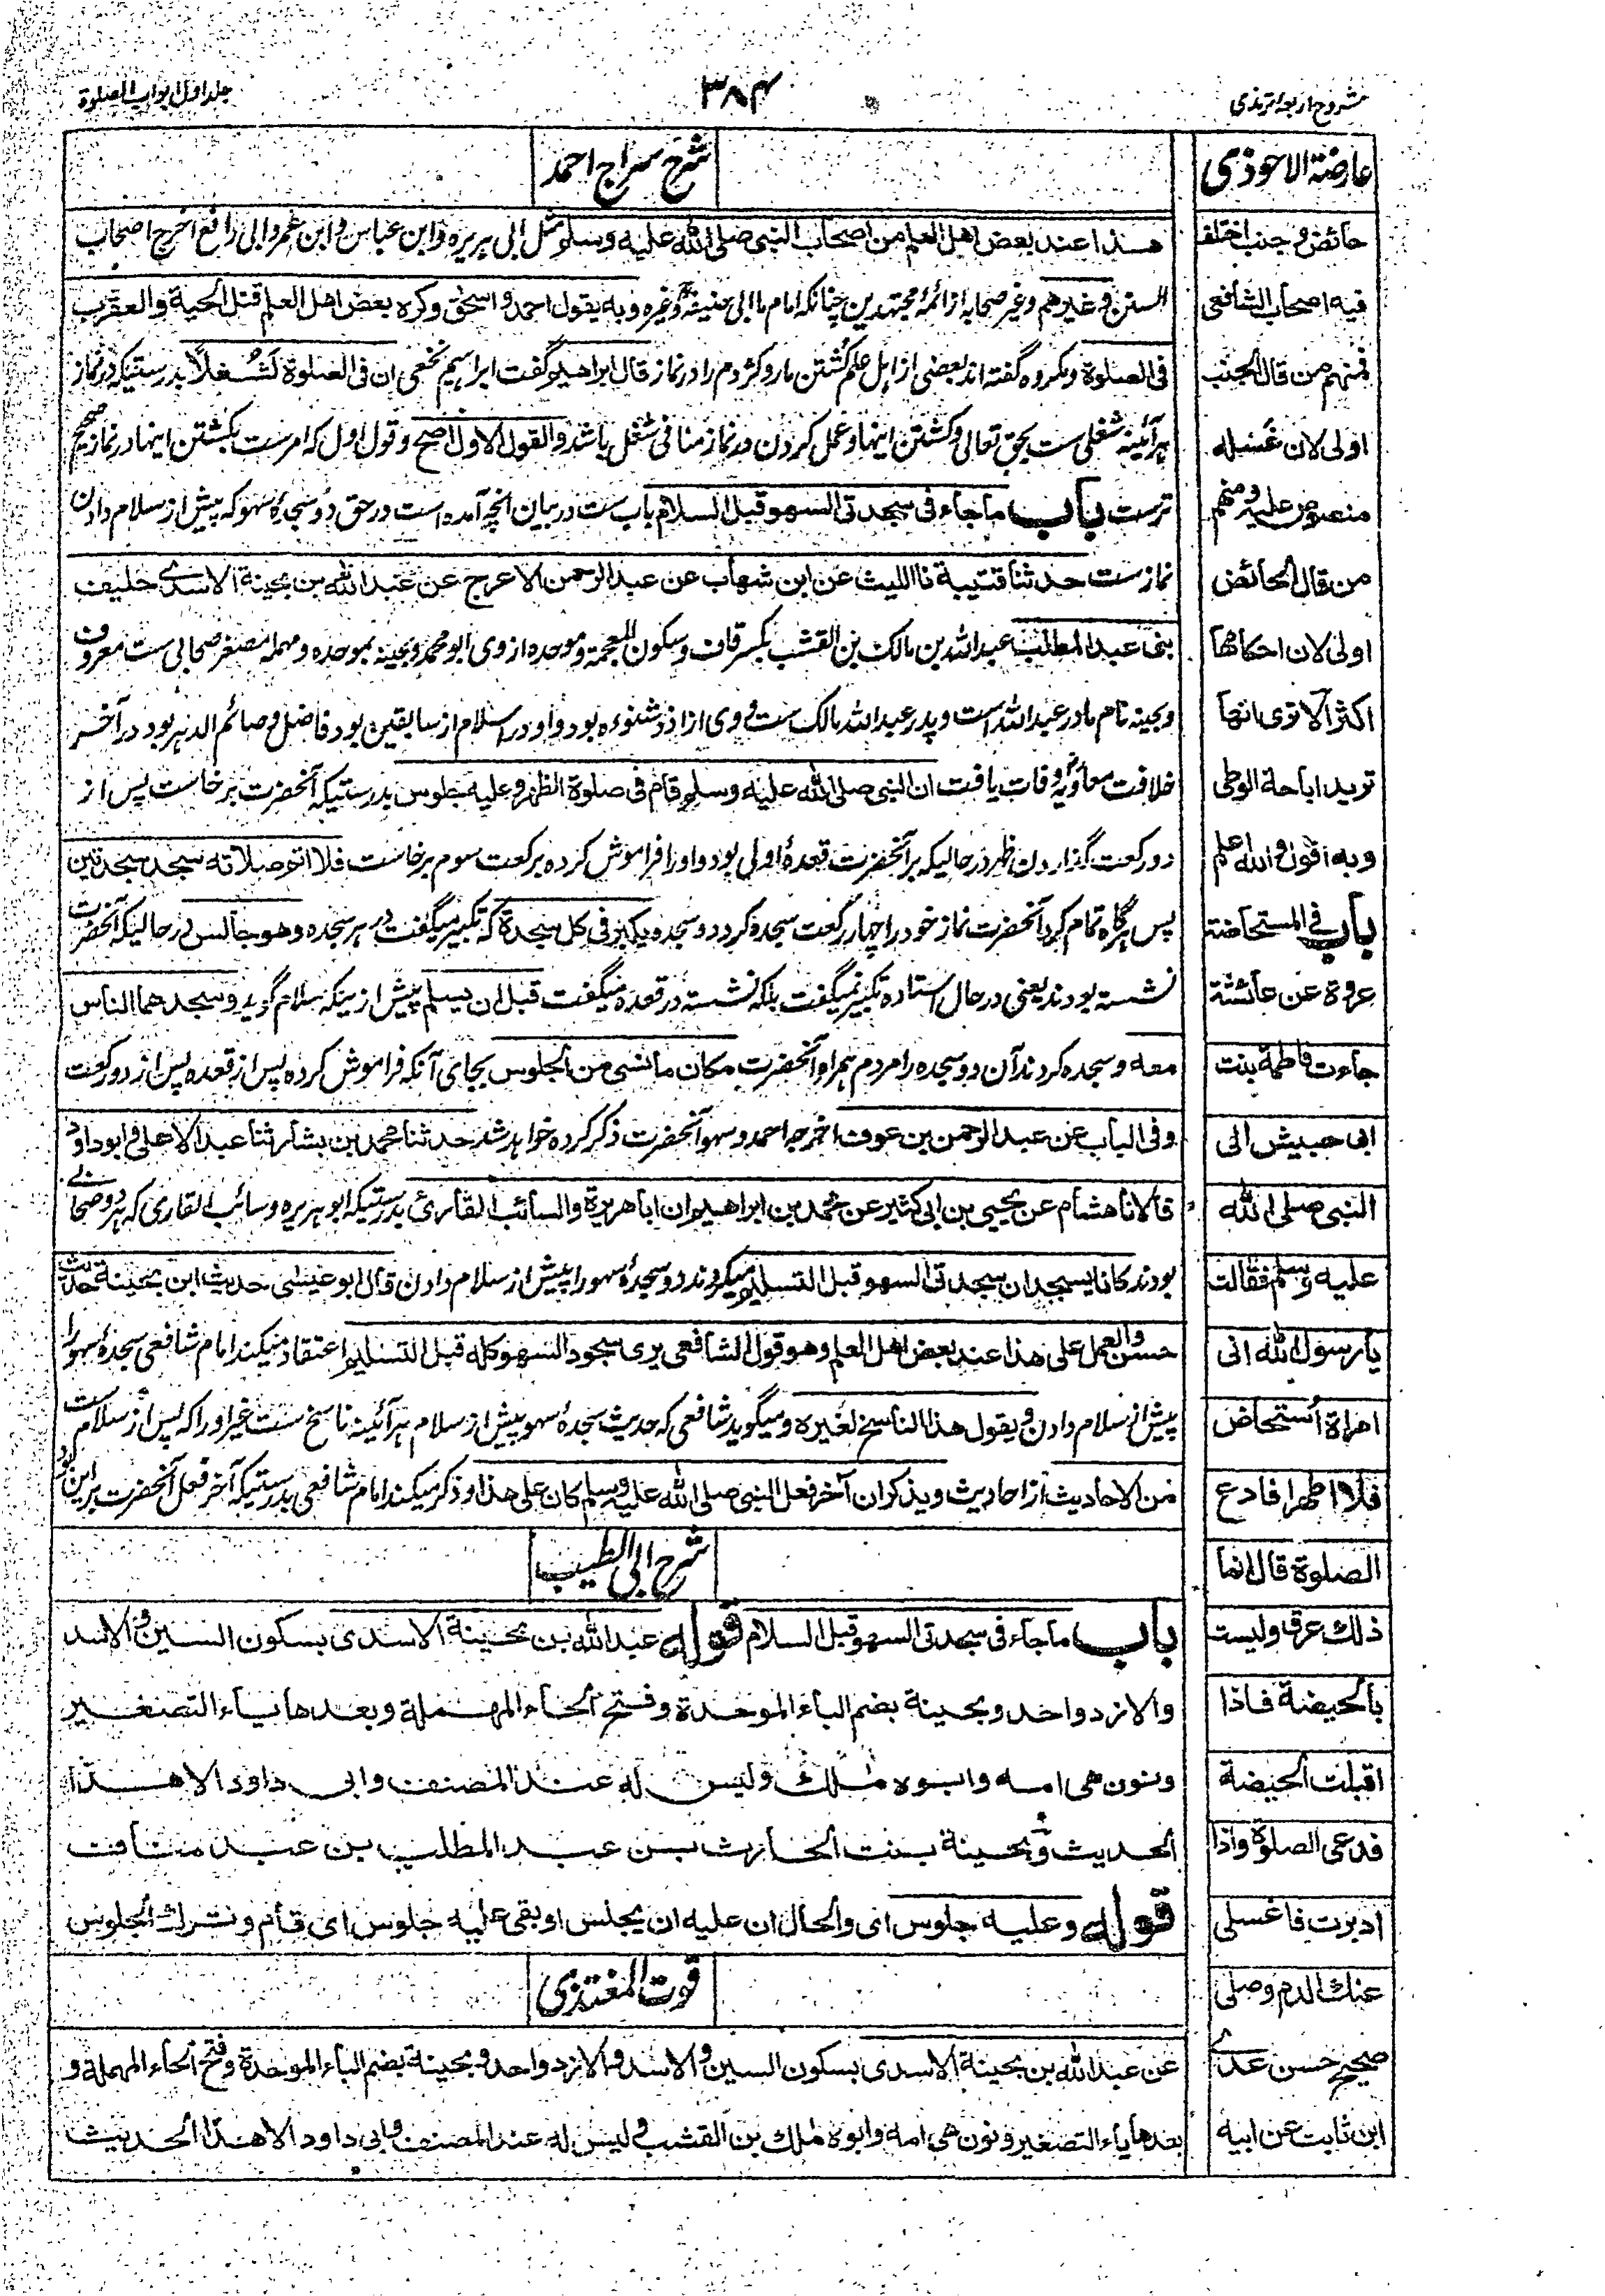 مشروح اربعہ ترمذی
۳۸۴
جلد اول ابواب الصلوۃ
عارضة الاحوذی
حائض و جنب اختلف
فیه اصحاب الشافعی
فمنهم من قال الجنب
اولی لان غسله
منصوص علیه و منهم
من قال الحائض
اولی لان احکامها
اکثر الا تری انها
ترید اباحة الوطی
وبه اقول والله اعلم
باب فی المستحاضة
عروة عن عائشة
جاءت فاطمة بنت
ابی حبیش الی
النبی صلی الله
علیه وسلم فقالت
یارسول الله انی
امراة استحاض
فلا اطهر افادع
الصلوة قال انما
ذلك عرق ولیست
بالحیضة فاذا
اقبلت الحیضة
فدعی الصلوة واذا
ادبرت فاغسلی
عنك الدم وصلی
صحیح حسن عدی
ابن ثابت عن ابیه
شرح سراج احمد
هذا عند بعض اهل العلم من اصحاب النبی صلی الله علیه وسلم مثل ابی ہریرہ و ابن عباس و ابن عمر و ابی رافع اخرج اصحاب
السنن و غیرهم وغیر صحابہ از ائمہ مجتہدین چنانکہ امام ما ابی حنیفہ وغیرہ وبه یقول احمد و اسحٰق وکره بعض اهل العلم قتل الحیة والعقرب
فی الصلوة و مکروہ گفتہ اند بعضی از اہل علم کشتن مار و کژدم را در نماز قال ابراهیم گفت ابراہیم نخعی ان فی الصلوة لَشُغلاً بدرستیکہ در نماز
ہر آئینہ شغلی ست بحق تعالی و کشتن اینها و عمل کردن در نماز منافی شغل باشد والقول الاول اصح و قول اول کہ امرست بکشتن اینها در نماز صحیح
ترست باب ماجاء فی سجدتی السهو قبل السلام باب ست در بیان آنچہ آمدہ است در حق دو سجدۂ سہو کہ پیش از سلام دادن
نمازست حدثنا قتیبة نا اللیث عن ابن شهاب عن عبد الرحمن الاعرج عن عبد الله بن بحینة الاسدی حلیف
بنی عبد المطلب عبد اللہ بن مالک بن القشب بکسر قاف و سکون المعجمة و موحدہ ازوی ابو محمد و بحینہ بموحدہ و مہملہ مصغر صحابی ست معروف
و بحینہ نام مادر عبد اللہ است و پدر عبد اللہ مالک ست و وی از ازد شنوءہ بود و او در اسلام از سابقین بود فاضل و صائم الدہر بود در آخر
خلافت معاویہ وفات یافت ان النبی صلی الله علیه وسلم قام فی صلوة الظهر و علیه جلوس بدرستیکہ آنحضرت برخاست پس از
دو رکعت گذاردن ظہر در حالیکہ بر آنحضرت قعدۂ اولی بود و او را فراموش کردہ برکعت سوم برخاست فلما اتم صلاته سجد سجدتین
پس ہرگاہ تمام کرد آنحضرت نماز خود را چہار رکعت سجدہ کرد دو سجدہ یکبر فی کل سجدة کہ تکبیر میگفت در ہر سجدہ وهو جالس در حالیکہ آنحضرت
نشستہ بودند یعنی در حال استادہ تکبیر نمیگفت بلکہ نشستہ در قعدہ میگفت قبل ان یسلم پیش ازینکہ سلام گوید وسجدهما الناس
معه و سجدہ کردند آن دو سجدہ را مردم ہمراہ آنحضرت مکان ما نسی من الجلوس بجای آنکہ فراموش کردہ پس از قعدہ پس از دو رکعت
وفی الباب عن عبد الرحمن بن عوف اخرجه احمد و سہو آنحضرت ذکر کردہ خواہد شد حدثنا محمد بن بشار ثنا عبد الاعلی و ابو داود
قالا نا هشام عن یحیی بن ابی کثیر عن محمد بن ابراهیم ان اباهریرة والسائب القاری بدرستیکہ ابو ہریرہ و سائب القاری کہ ہر دو صحابی
بودند کانا یسجدان سجدتی السهو قبل التسلیم میکردند دو سجدۂ سہو را پیش از سلام دادن قال ابو عیسی حدیث ابن بحینة حدیث
حسن والعمل علی هذا عند بعض اهل العلم وهو قول الشافعی یری سجود السهو کله قبل التسلیم اعتقاد میکند امام شافعی سجدۂ سہو را
پیش از سلام دادن و یقول هذا الناسخ لغیره و میگوید شافعی کہ حدیث سجدۂ سہو پیش از سلام ہر آئینہ ناسخ ست غیر او را کہ پس از سلام ست
من الاحادیث از احادیث ویذکر ان آخر فعل النبی صلی الله علیه وسلم کان علی هذا و ذکر میکند امام شافعی بدرستیکہ آخر فعل آنحضرت بر این بود
شرح ابی الطیب
باب ماجاء فی سجدتی السهو قبل السلام قوله عبدالله بن بحینة الاسدی بسکون السین و الاسد
والازد واحد و بحینة بضم الباء الموحدة وفتح الحاء المهملة و بعدها یاء التصغیر
ونون هی امه وابوه مٰلك ولیس له عند المصنف وابی داود الا هذا
الحدیث و بحینة بنت الحارث بن عبد المطلب بن عبد مناف
قوله وعلیه جلوس ای والحال ان علیه ان یجلس او بقی علیه جلوس ای قام و ترك الجلوس
قوت المغتذی
عن عبدالله بن بحینة الاسدی بسکون السین و الاسد والازد واحد و بحینة بضم الباء الموحدة وفتح الحاء المهملة و
بعدها یاء التصغیر ونون هی امه وابوه مٰلك بن القشب ولیس له عند المصنف وابی داود الا هذا الحدیث